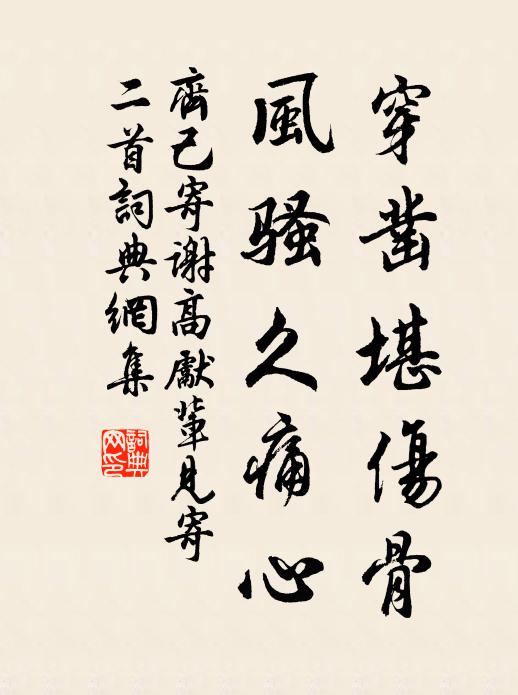 穿鑿堪傷骨
風騷久痛心
齊己寄謝高獻輩見寄
二首詞典網集
詞典
网印